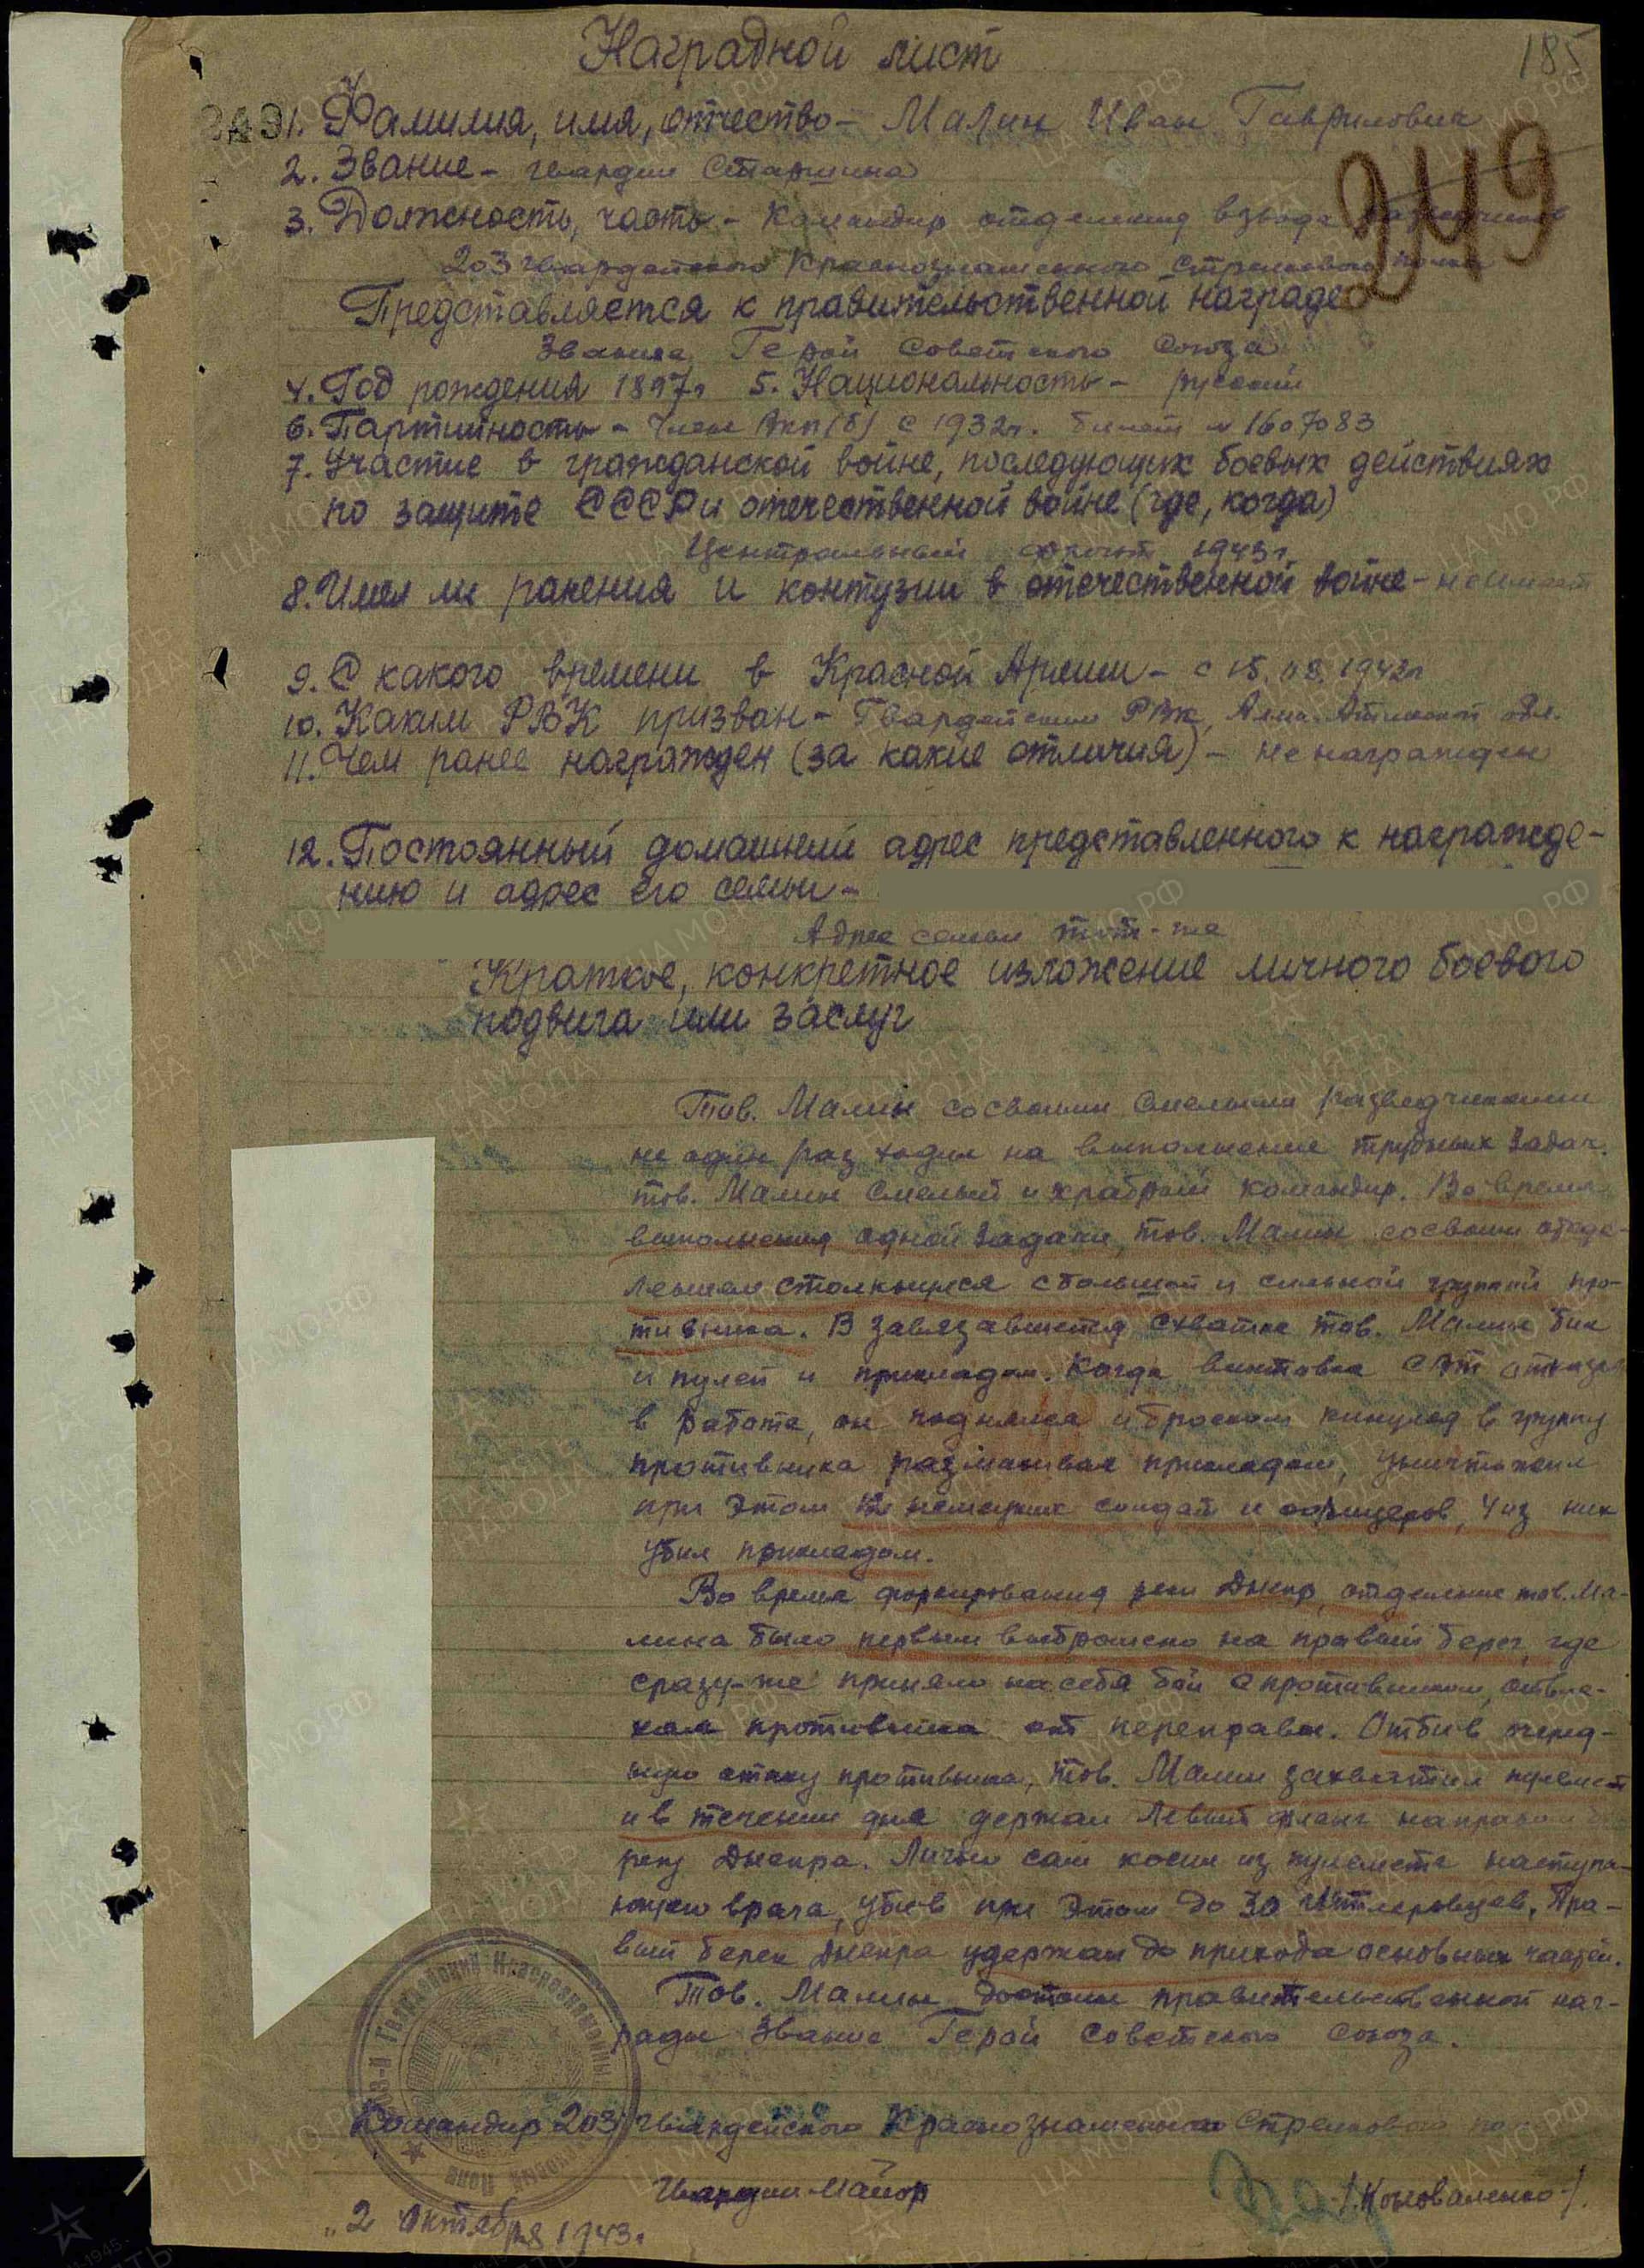 185
Наградной лист
1. Фамилия, имя, отчество - Малин Иван Гаврилович
249
2. Звание - гвардии Старшина
3. Должность, часть - Командир отделения взвода разведчиков
203 гвардейского Краснознаменного стрелкового полка
Представляется к правительственной награде
Звание Герой Советского Союза
4. Год рождения 1897г 5. Национальность - русский
6. Партийность - Член ВКП(б) с 1932г. билет № 1607083
7. Участие в гражданской войне, последующих боевых действиях
по защите СССР и отечественной войне (где, когда)
Центральный фронт 1943г
8. Имел ли ранения и контузии в отечественной войне - не имеет
9. С какого времени в Красной Армии - с 15.08.1942г
10. Каким РВК призван - Гвардейским РВК, Алма-Атинской обл.
11. Чем ранее награжден (за какие отличия) - не награжден
12. Постоянный домашний адрес представленного к награжде-
нию и адрес его семьи -
Адрес семьи тот-же
Краткое, конкретное изложение личного боевого
подвига или заслуг
Тов. Малин сосвоими смелыми разведчиками
не один раз ходил на выполнение трудных задач.
тов. Малин смелый и храбрый командир. Во время
выполнения одной задачи, тов. Малин сосвоим отде-
лением столкнулся с большой и сильной группой про-
тивника. В завязавшейся схватке тов. Малин бил
и пулей и прикладом. Когда винтовка СВТ отказала
в работе, он поднялся и броском кинулся в группу
противника размахивая прикладом, уничтожил
при этом 12 немецких солдат и офицеров, 4 из них
убил прикладом.
Во время форсирования реки Днепр, отделение тов. Ма-
лина было первым выброшено на правый берег, где
сразу-же приняло на себя бой с противником, отвле-
кая противника от переправы. Отбив очеред-
ную атаку противника, тов. Малин захватил пулемет
и в течении дня держал левый фланг на правом
реки Днепра. Лично сам косил из пулемета наступа-
ющего врага, убив при этом до 30 гитлеровцев. Пра-
вый берег Днепра удержал до прихода основных частей.
Тов. Малин достоин правительственной наг-
рады звание Герой Советского Союза.
Командир 203 гвардейского Краснознаменного Стрелкового по
Гвардии-Майор /Коноваленко/.
"2 октября 1943г.